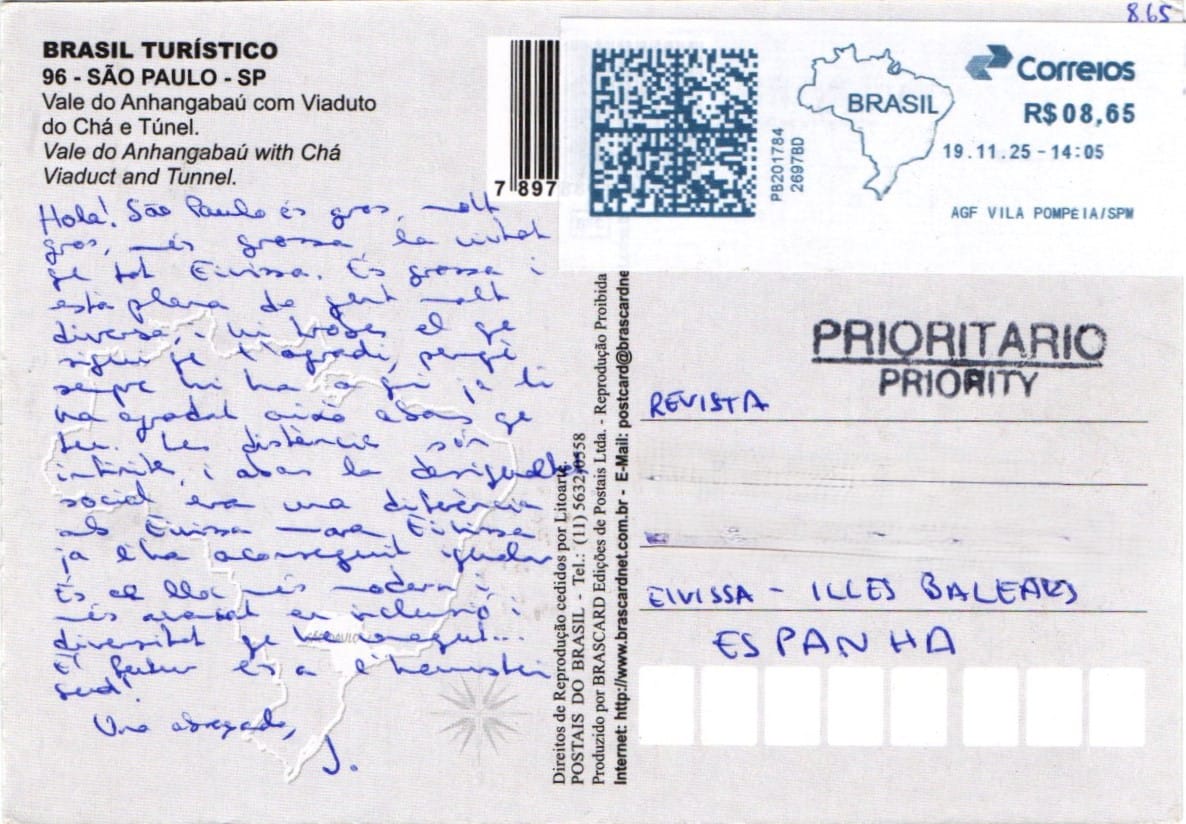 8.65
BRASIL TURÍSTICO
96 - SÃO PAULO - SP
Vale do Anhangabaú com Viaduto
do Chá e Túnel.
Vale do Anhangabaú with Chá
Viaduct and Tunnel.
7 897
BRASIL
Correios
R$08,65
19.11.25-14:05
PB201784
2697BD
AGF VILA POMPEIA/SPM
Hola! São Paulo és gros, molt
gros, més grossa la ciutat
que tot Eivissa. És grossa i
està plena de gent molt
diversa, i hi trobes el que
sigui que t'agradi, perquè
sempre hi ha aquí ja li
ha agradat això abans que
teu. Les distàncies són
infinites, i abans la desigualtat
social era una diferència
amb Eivissa Eivissa
ja l'ha aconseguit igualar
És el lloc més modern i
més avançat en inclusió i
diversitat que he conegut...
El futur és a l'hemisferi
sud!
Una abraçada,
J.
SÃO PAULO
Direitos de Reprodução cedidos por Litoarte.
POSTAIS DO BRASIL - Tel.: (11) 5632-0558
Produzido por BRASCARD Edições de Postais Ltda. - Reprodução Proibida
Internet: http://www.brascardnet.com.br - E-Mail: postcard@brascardne
PRIORITARIO
PRIORITY
REVISTA
EIVISSA - ILLES BALEARS
ESPANHA